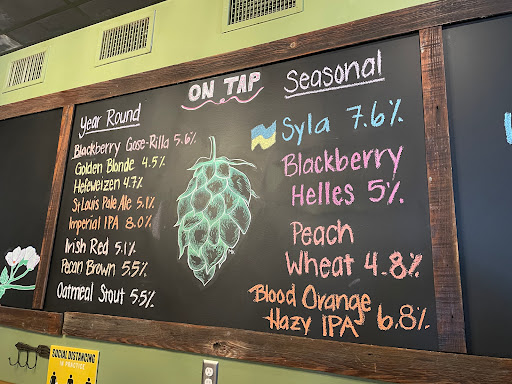 ON TAP
Year Round
Blackberry Gose-Rilla 5.6%
Golden Blonde 4.5%
Hefeweizen 4.7%
St Louis Pale Ale 5.1%
Imperial IPA 8.0%
Irish Red 5.1%
Pecan Brown 5.5%
Oatmeal Stout 5.5%
Seasonal
Syla 7.6%
Blackberry
Helles 5%
Peach
Wheat 4.8%
Blood Orange
Hazy IPA 6.8%
SOCIAL DISTANCING